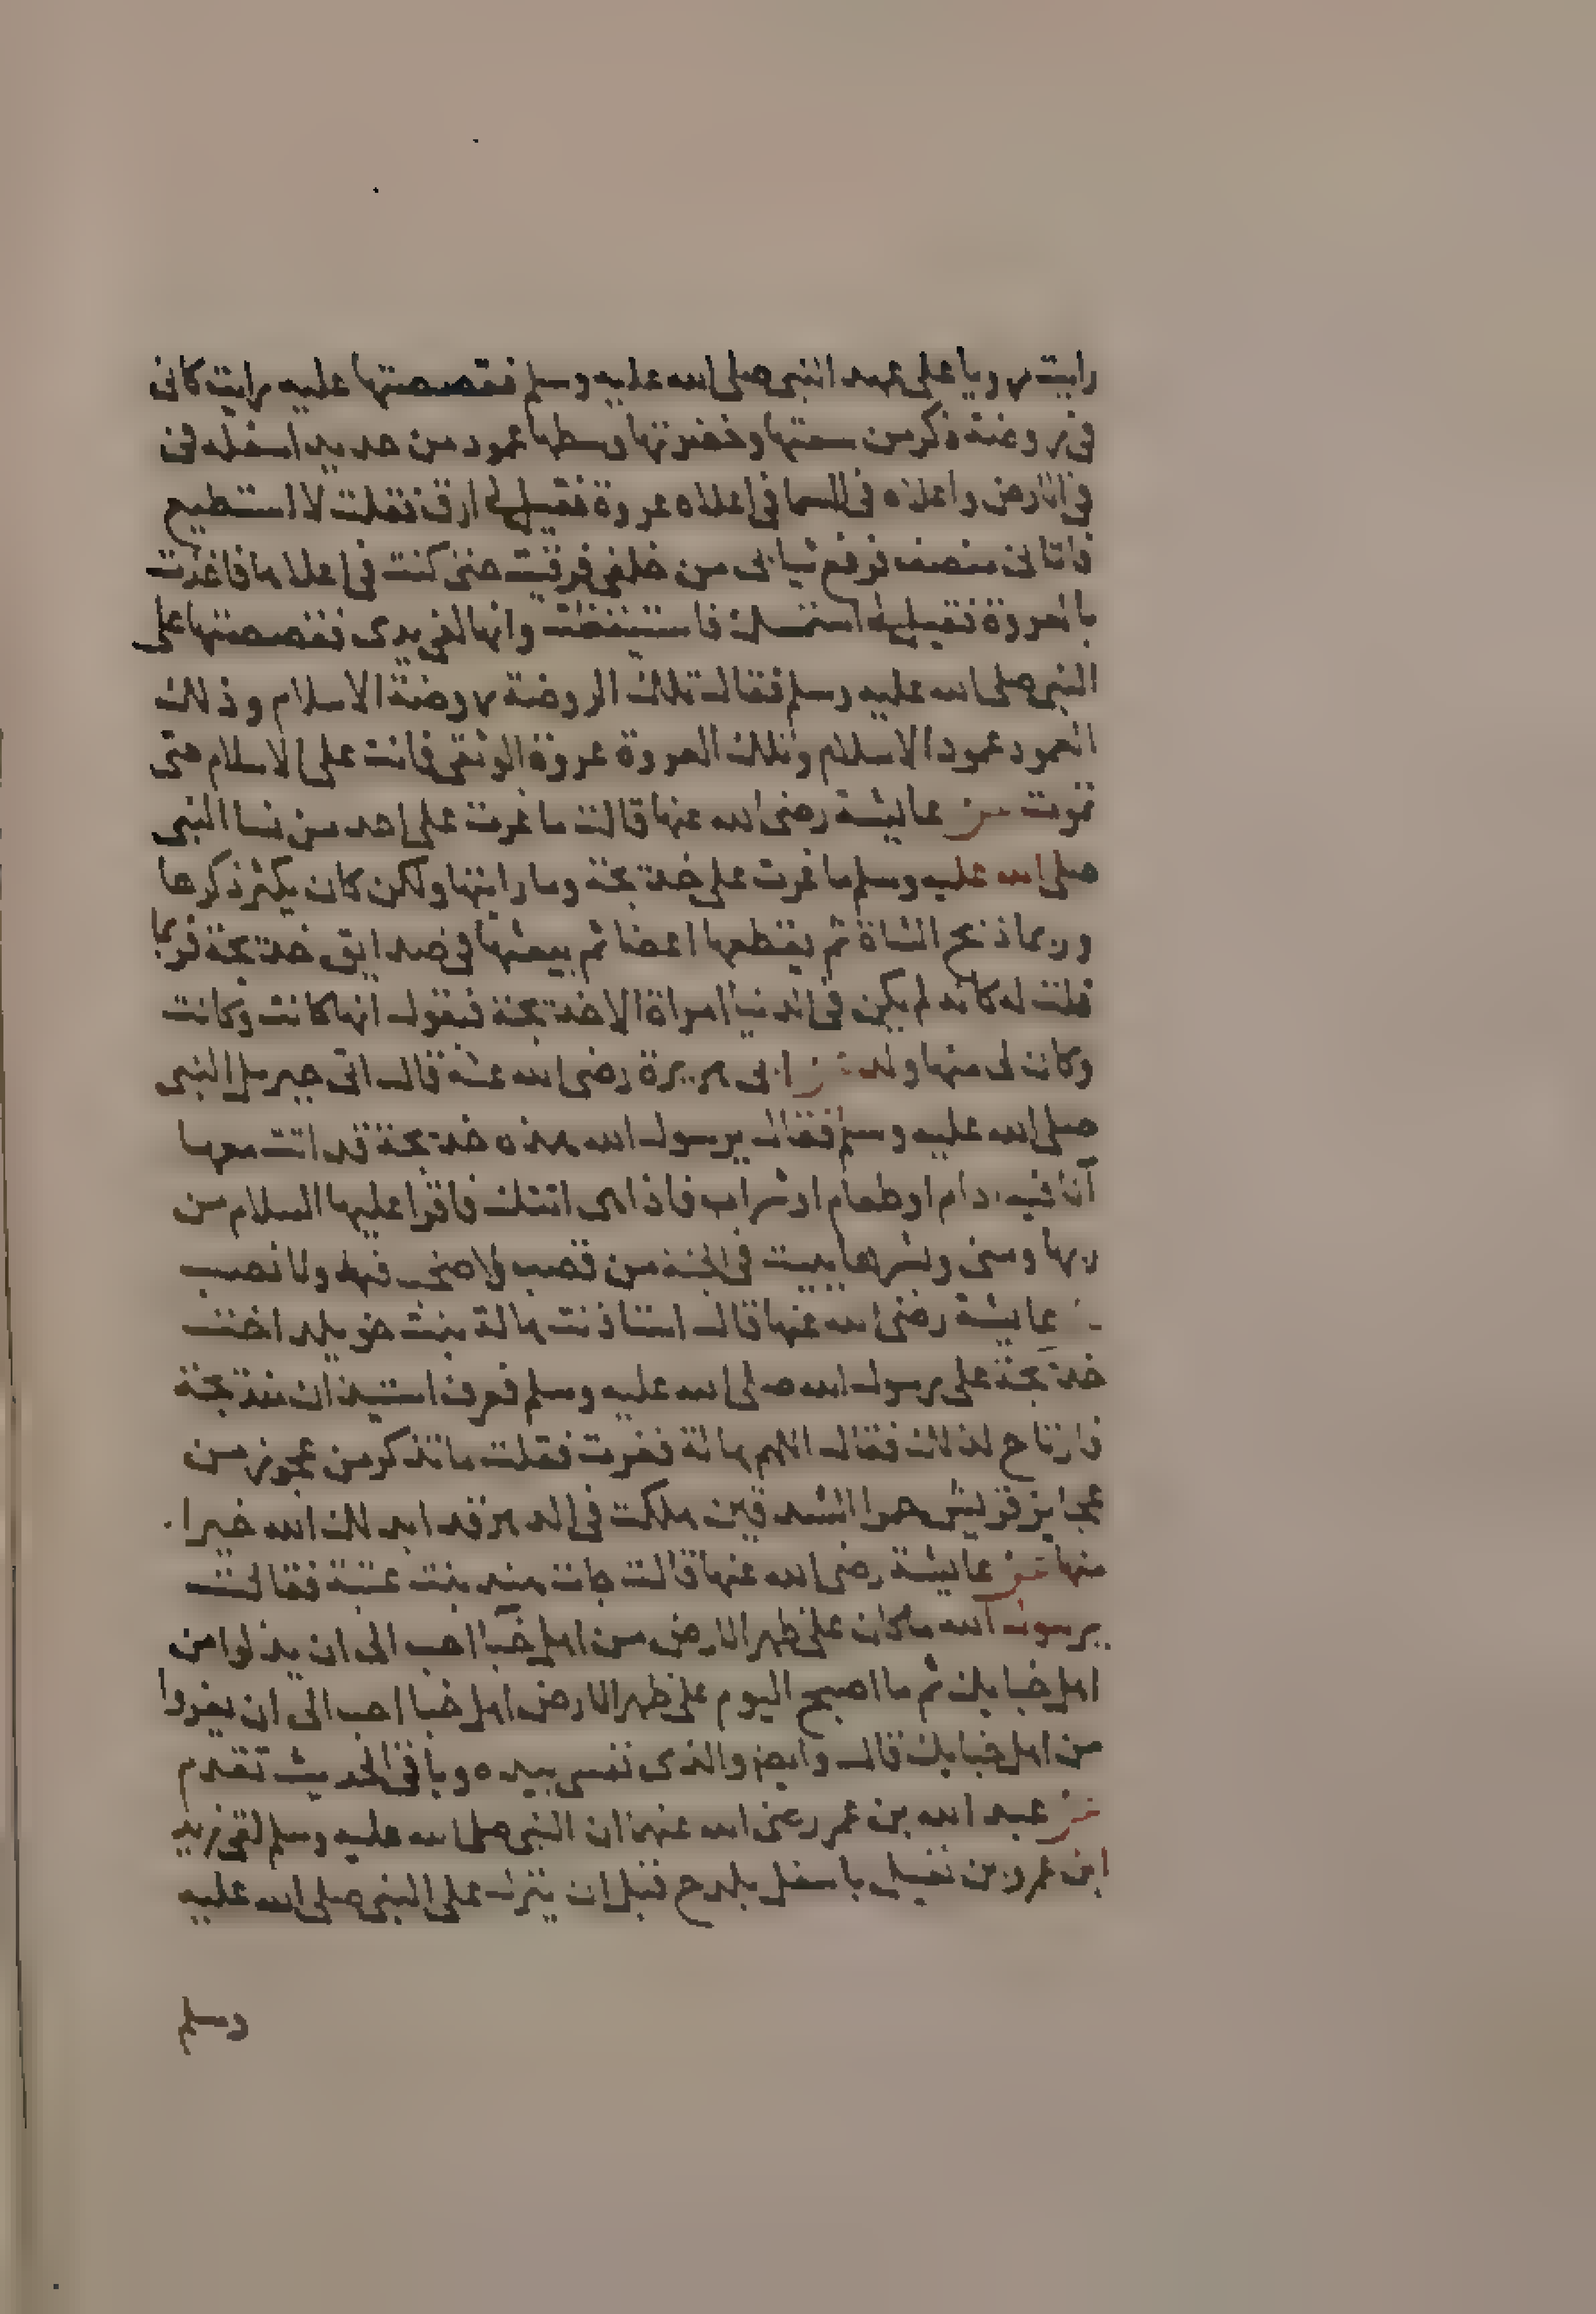 رايت رويا على عهد النبي صلى الله عليه وسلم فقصصتها عليه رايت كاني
في روضة ذكر من سعتها وخضرتها وسطها عمود من حديد اسفله في
في الارض واعلاه في السما في اعلاه عروة فقيل لي ارق فقلت لا استطيع
فاتاني منصف فرفع ثيابي من خلفي فرقيت حتى كنت في اعلاها فاخذت
بالعروة فقيل له استمسك فاستيقظت وانها لفي يدي فقصصتها على
النبي صلى الله عليه وسلم فقال تلك الروضة روضة الاسلام وذلك
العمود عمود الاسلام وتلك العروة عروة الوثقى فانت على الاسلام حتى
تموت عن عايشة رضى الله عنها قالت ما غرت على احد من نسا النبي
صلى الله عليه وسلم ما غرت على خديجة وما رايتها ولكن كان يكثر ذكرها
وربما ذبح الشاة ثم يقطعها اعضا ثم يبعثها في صدايق خديجة فربما
قلت له كانه لم يكن في الدنيا امراة الا خديجة فيقول انها كانت وكانت
وكانت لى منها ولد عن ابى هريرة رضى الله عنه قال اتى جبريل النبي
صلى الله عليه وسلم فقال يرسول الله هذه خديجة قد اتت معها
انا فيه ادام او طعام او شراب فاذا هى اتتك فاقرا عليها السلام من
ربها ومنى وبشرها ببيت في الجنة من قصب لا صخب فيها ولا نصب
عايشة رضى الله عنها قال استاذنت هالة بنت خويلد اخت
خديجة على رسول الله صلى الله عليه وسلم فعرف استيذان خديجة
فارتاح لذلك فقال اللهم هالة فغرت فقلت ما تذكر من عجوز من
عجايز قريش حمرا الشدقين هلكت في الدهر قد ابدلك الله خيرا
منها عن عايشة رضى الله عنها قالت جات هند بنت عتبة فقالت
يرسول الله ما كان على ظهر الارض من اهل خبا احب الى ان يذلوا من
اهل خبايك ثم ما اصبح اليوم على ظهر الارض اهل خبا احب الى ان يعزوا
من اهل خبايك قال وايضا والذى نفسي بيده وباقى الحديث تقدم
عن عبد الله بن عمر رضى الله عنهما ان النبي صلى الله عليه وسلم لقى زيد
ابن عمرو بن نفيل باسفل بلدح قبل ان ينزل على النبي صلى الله عليه
وسلم